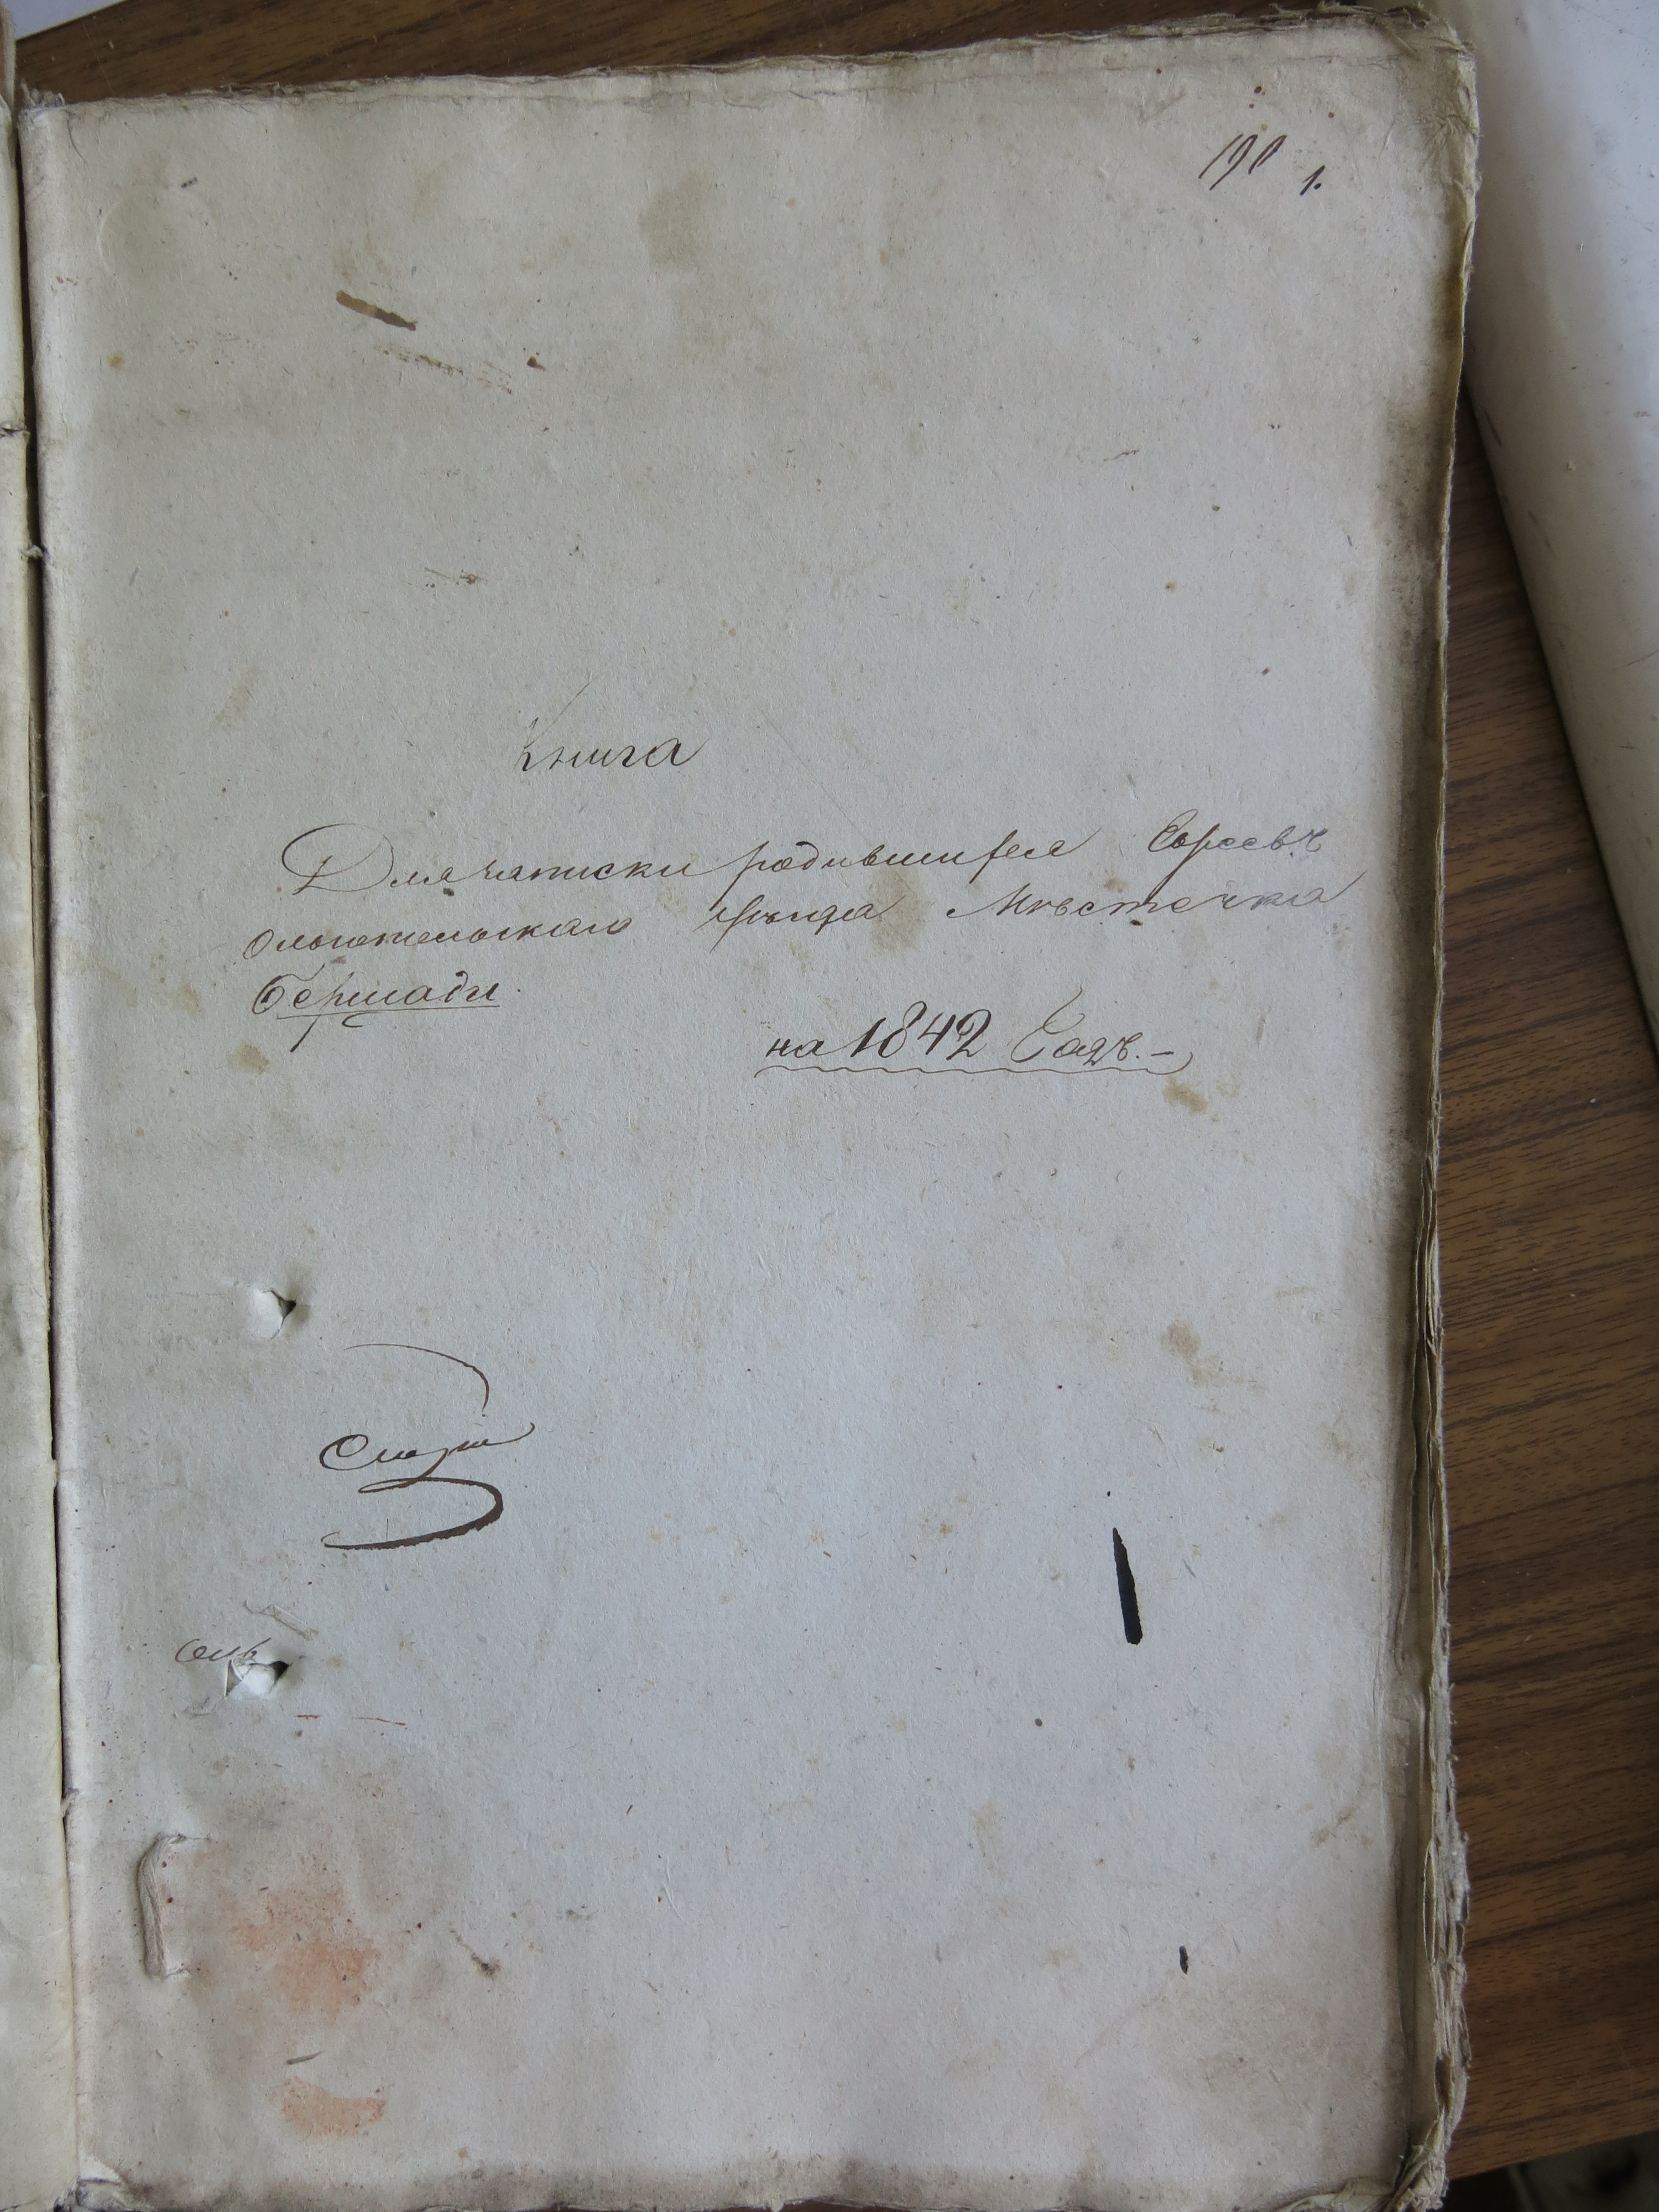 190 1.
Книга
Для записки родившихся Евреевъ
Ольгопольскаго уѣзда Мѣстечка
Бершади.
на 1842 Годъ. –